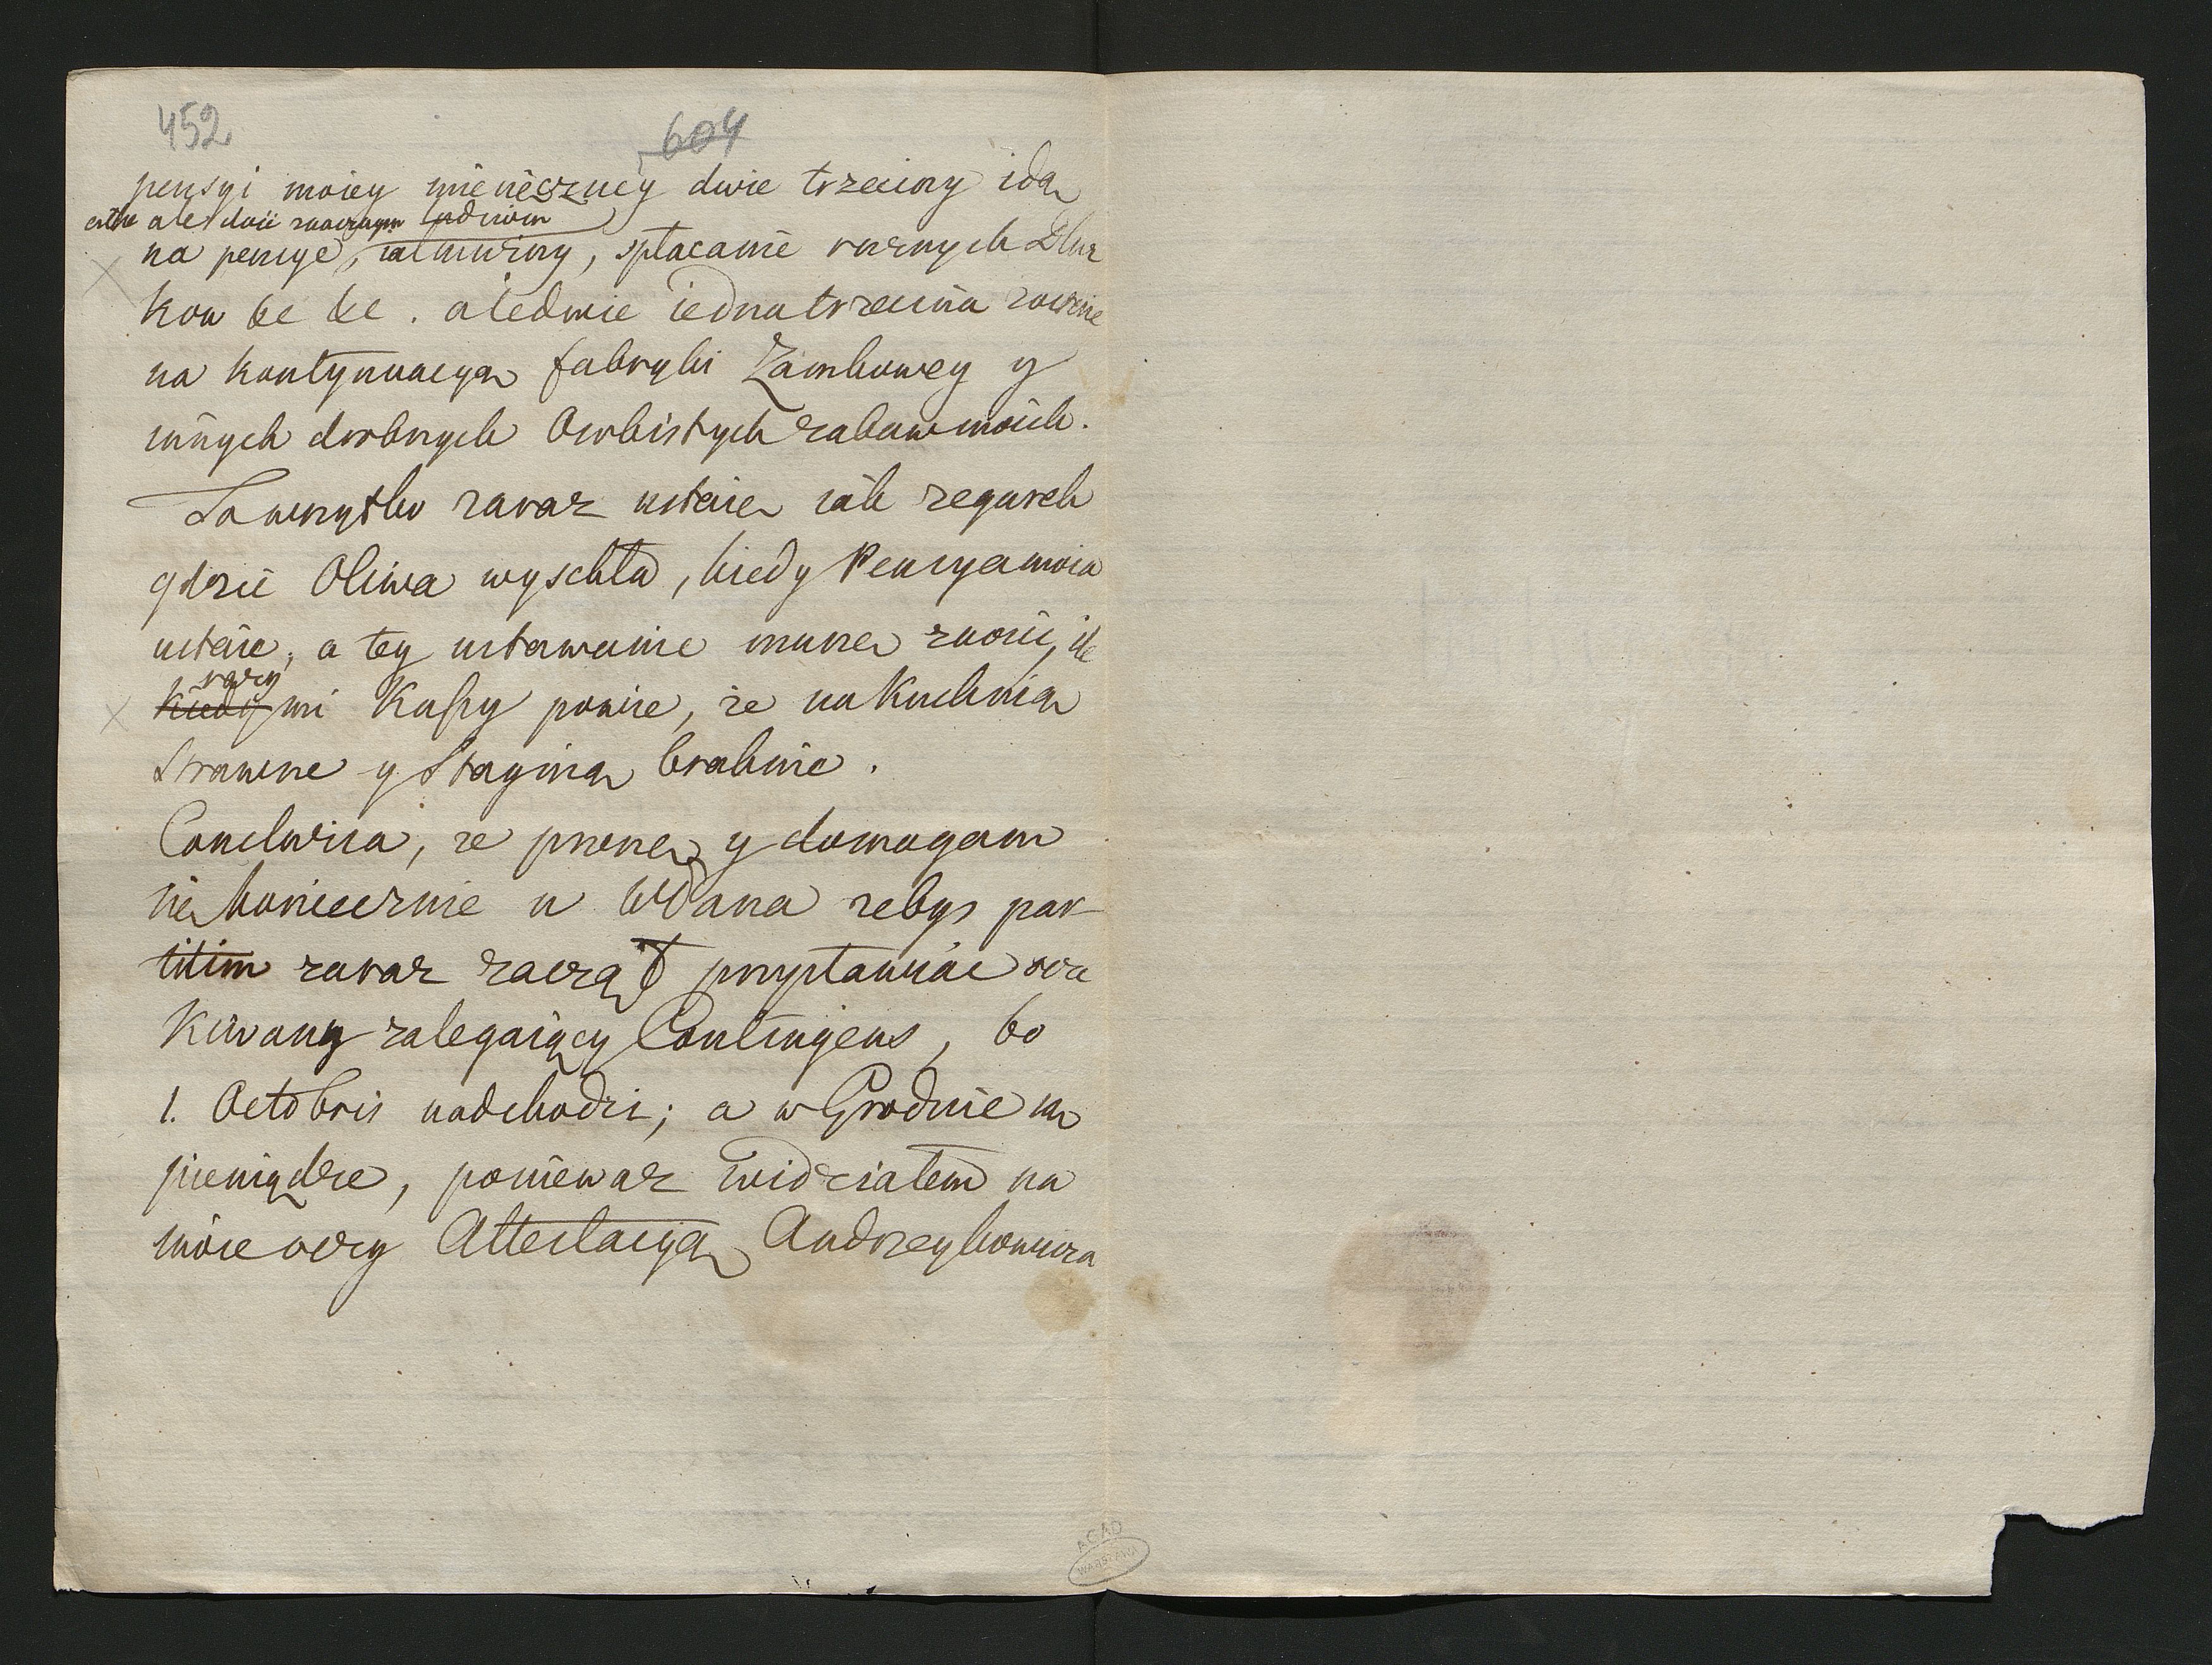 452
604
pensyi moiey miesięczney dwie trzeciny idą
ale dość znacznym ludziom
na pensye, iałmużny, spłacanie roznych Dłuż
kow &c &c. aledwie iedna trzecina zostaie
na kontynuacyą fabryki Zamkowey y
innych drobnych Osobistych zabaw moich.
To wszystko zaraz ustaie iak zegarek
gdzie Oliwa wyschła, kiedy Pensya moia
ustaie; a tey ustawanie muszę znosić, ile
razy
kiedy mi Kapy powie, że na Kuchnią
Strawne y Staynią braknie.
Conclusia, że proszę y domagam
się koniecznie u WPana żebyś par
titim zaraz zaczął przypławiac ocze
kiwany zalegaiący Contingens, bo
1. Octobris nadchodzi; a w Grodnie są
pieniądze, poniewaz widziałem na
moie oczy Attestacyą Andrzeykowicza
ACAD
WARSZAWA